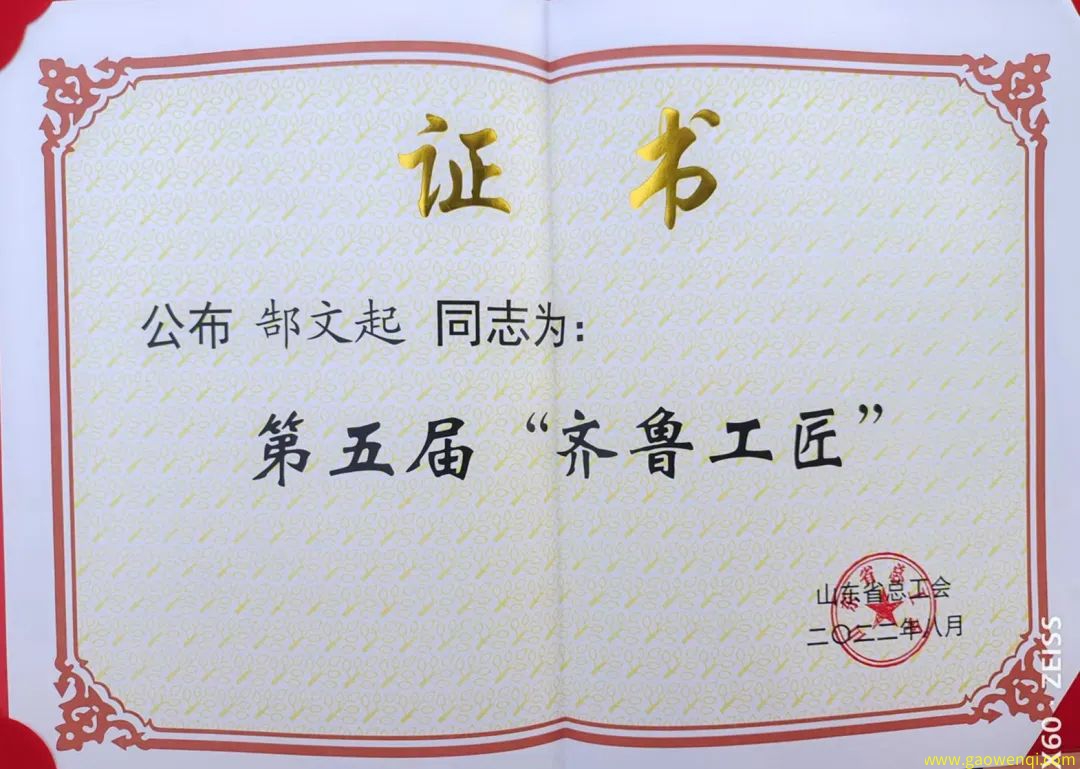 证 书
公布 郜文起 同志为：
第五届“齐鲁工匠”
山东省总工会
二〇二二年八月
X60 · ZEISS
www.gaowenqi.com